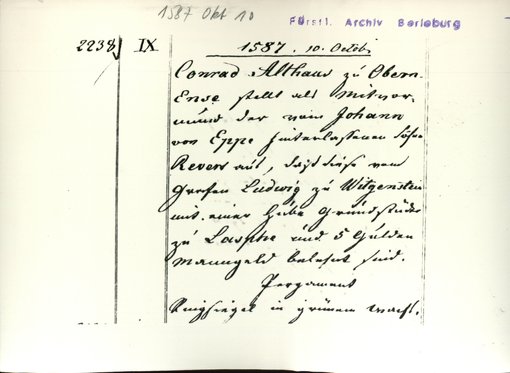 1587 Okt 10
Fürstl. Archiv Berleburg
2238 IX 1587. 10. Octob.
Conrad Althaus zu Obern-
Ense stellt als Mitvor-
mund der vom Johann
von Eppe hinterlassenen Söhne
Revers aus, daß diese vom
Grafen Ludwig zu Witgenstein
mit einer Hube Grundstücke
zu Laasphe und 5 Gulden
Manngeld belehnt sind.
Pergament
Ringsiegel in grünem Wachs.